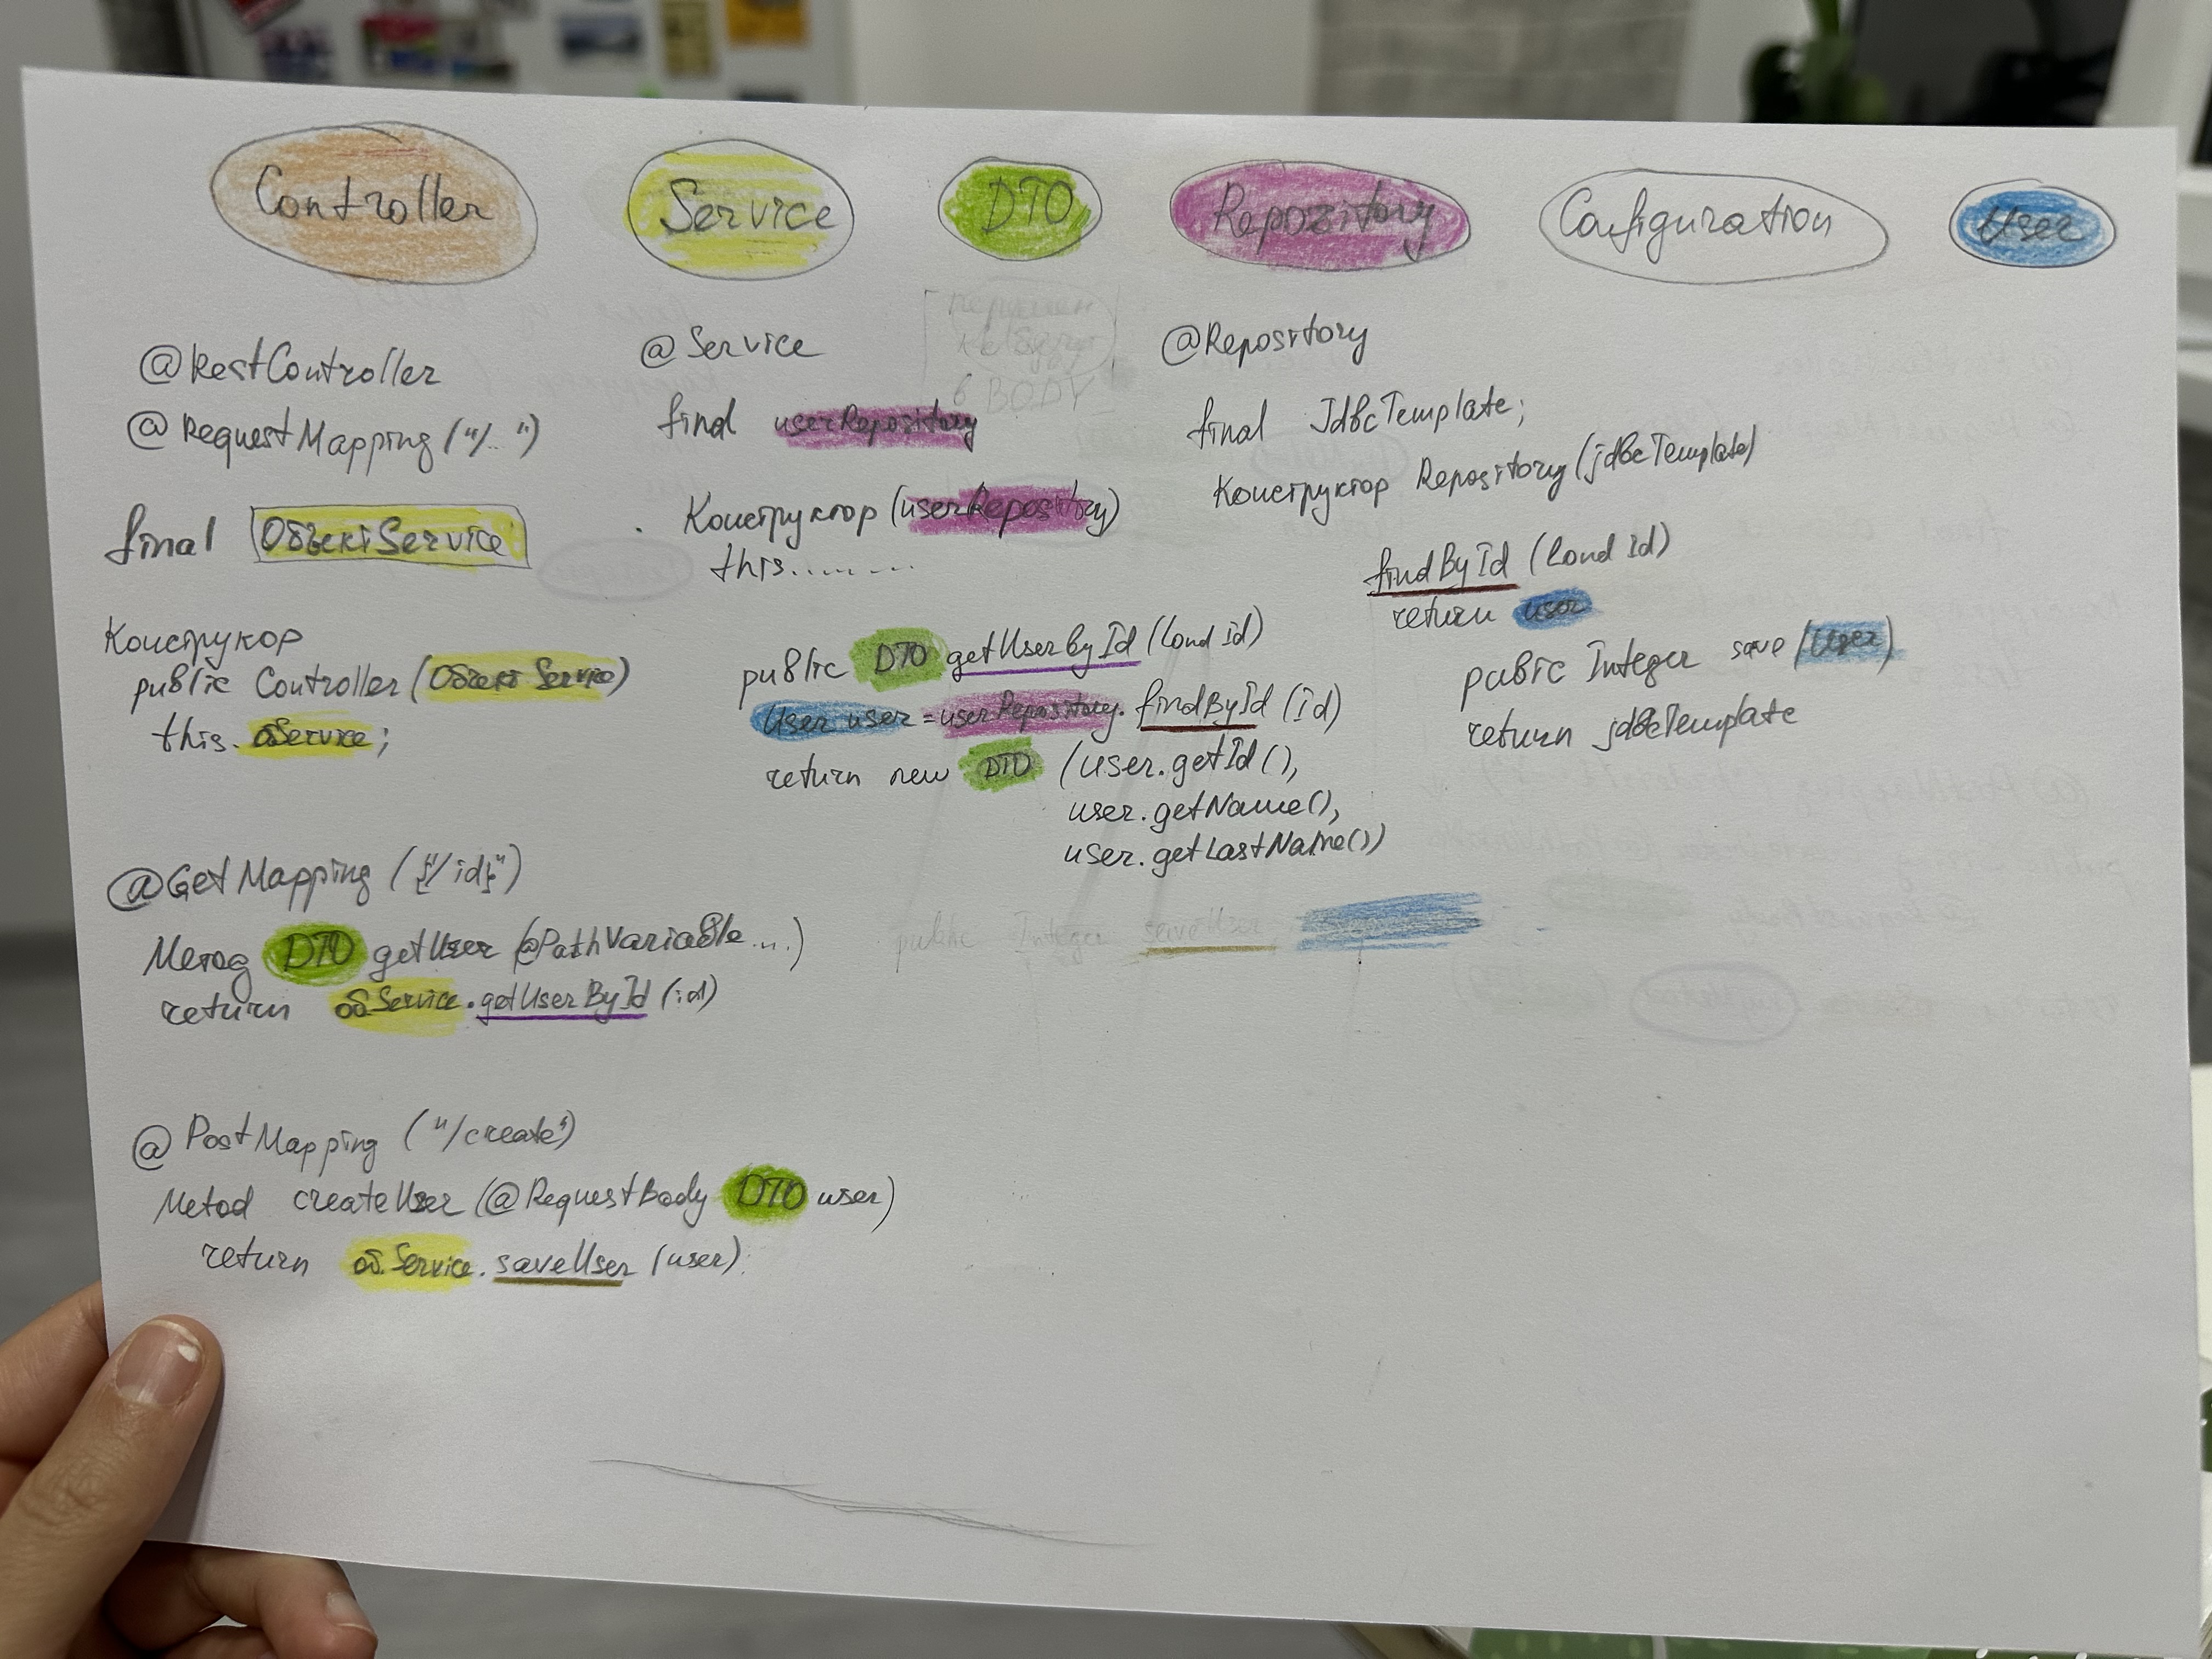 Controller
Service
DTO
Repozitory
Configuration
User
@RestController
@RequestMapping ("/..")
final ОбъектService
Конструкор
public Controller (Объект Service)
this. oService;
@GetMapping ({"/id}")
Метод DTO getUser (@PathVariable...)
return об.Service.getUserById (id)
@PostMapping ("/create")
Metod createUser (@RequestBody DTO user)
return об.Service.saveUser (user)
@Service
final userRepository
Конструктор (userRepository)
this........
public DTO getUserById (Lond id)
User user = userRepository.findById (id)
return new DTO (user.getId(),
user.getName(),
user.getLastName())
public Integer saveUser
в BODY
@Repository
final JdbcTemplate;
Конструктор Repository (jdbcTemplate)
findById (Lond id)
return user
public Integer save (User)
return jdbcTemplate